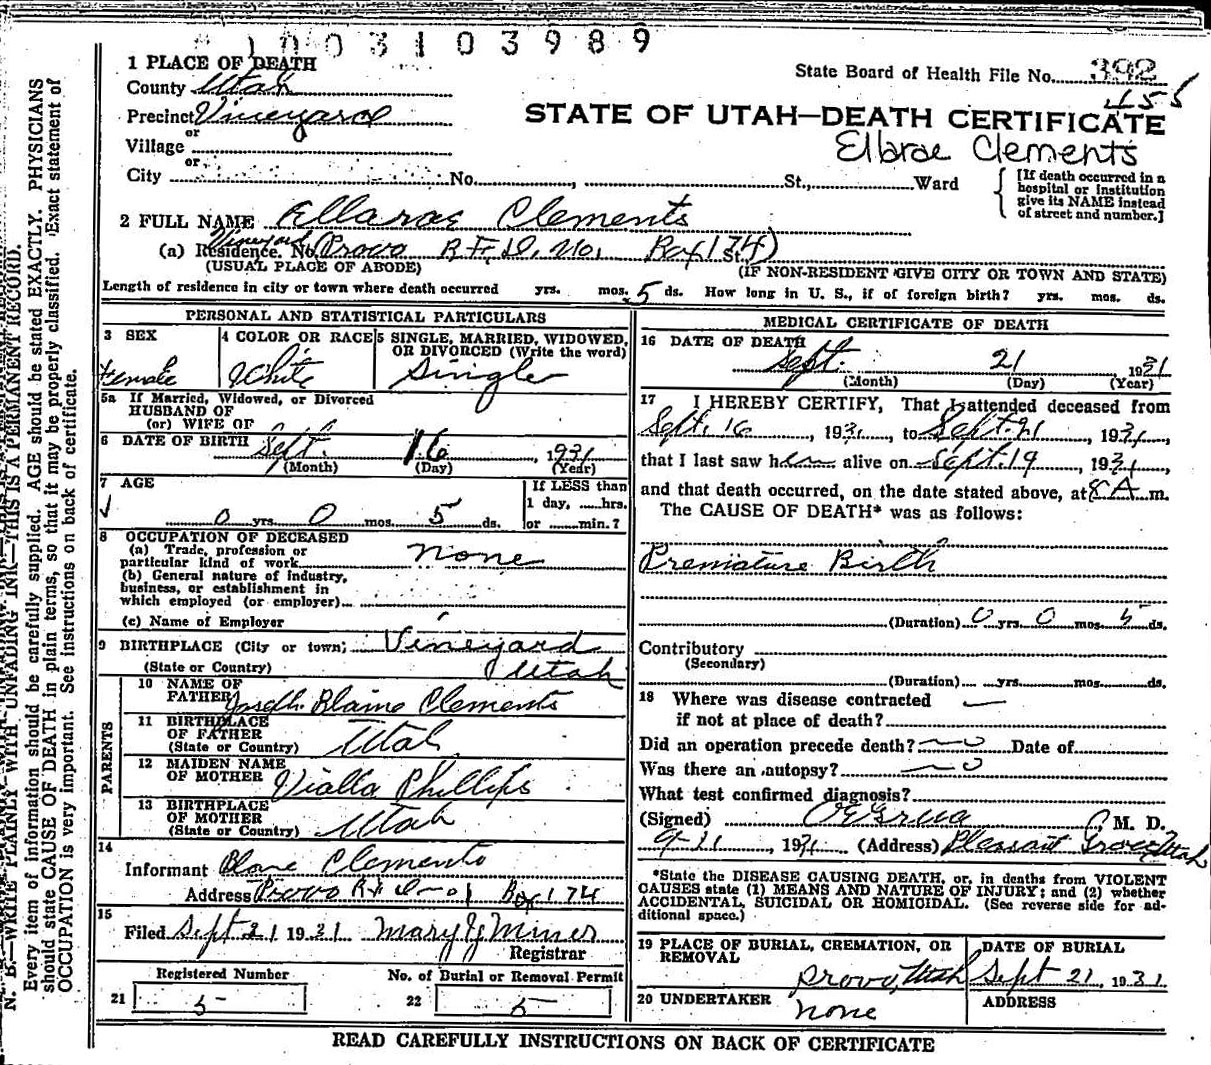 1003103989
1 PLACE OF DEATH
State Board of Health File No. 392
County Utah
455
Precinct Vineyard
STATE OF UTAH—DEATH CERTIFICATE
or
Village
Ellarae Clements
or
City No. , St., Ward
[If death occurred in a hospital or institution give its NAME instead of street and number.]
2 FULL NAME Ellarae Clements
(a) Residence. No. Vineyard (Provo R.F.D. No. 1 Box 174) St.
(USUAL PLACE OF ABODE) (IF NON-RESIDENT GIVE CITY OR TOWN AND STATE)
Length of residence in city or town where death occurred yrs. mos. 5 ds. How long in U. S., if of foreign birth? yrs. mos. ds.
PERSONAL AND STATISTICAL PARTICULARS
3 SEX
Female
4 COLOR OR RACE
White
5 SINGLE, MARRIED, WIDOWED, OR DIVORCED (Write the word)
Single
5a If Married, Widowed, or Divorced
HUSBAND OF
(or) WIFE OF
6 DATE OF BIRTH Sept. 16, 1931
(Month) (Day) (Year)
7 AGE
0 yrs. 0 mos. 5 ds.
If LESS than
1 day, ......hrs.
or ........min.?
8 OCCUPATION OF DECEASED
(a) Trade, profession or
particular kind of work none
(b) General nature of industry,
business, or establishment in
which employed (or employer)
(c) Name of Employer
9 BIRTHPLACE (City or town) Vineyard
(State or Country) Utah
PARENTS
10 NAME OF
FATHER Joseph Blaine Clements
11 BIRTHPLACE
OF FATHER
(State or Country) Utah
12 MAIDEN NAME
OF MOTHER Vialla Phillips
13 BIRTHPLACE
OF MOTHER
(State or Country) Utah
14
Informant Blane Clements
Address Provo R.F.D. - 01 Box 174
15
Filed Sept 21 1931 Mary J. Miner
Registrar
Registered Number
21 5
No. of Burial or Removal Permit
22 5
MEDICAL CERTIFICATE OF DEATH
16 DATE OF DEATH
Sept. 21 1931
(Month) (Day) (Year)
17 I HEREBY CERTIFY, That I attended deceased from
Sept. 16, 1931, to Sept. 21, 1931,
that I last saw her alive on Sept. 19, 1931,
and that death occurred, on the date stated above, at 8 A m.
The CAUSE OF DEATH* was as follows:
Premature Birth
(Duration) 0 yrs. 0 mos. 5 ds.
Contributory
(Secondary)
(Duration) yrs. mos. ds.
18 Where was disease contracted
if not at place of death?
Did an operation precede death? no Date of
Was there an autopsy? no
What test confirmed diagnosis?
(Signed) O E Grua, M. D.
9-21, 1931 (Address) Pleasant Grove, Utah
*State the DISEASE CAUSING DEATH, or, in deaths from VIOLENT
CAUSES state (1) MEANS AND NATURE OF INJURY; and (2) whether
ACCIDENTAL, SUICIDAL OR HOMICIDAL. (See reverse side for ad-
ditional space.)
19 PLACE OF BURIAL, CREMATION, OR
REMOVAL
Provo, Utah
DATE OF BURIAL
Sept 21, 1931
20 UNDERTAKER
none
ADDRESS
READ CAREFULLY INSTRUCTIONS ON BACK OF CERTIFICATE
N. B.—WRITE PLAINLY WITH UNFADING INK—THIS IS A PERMANENT RECORD.
Every item of information should be carefully supplied. AGE should be stated EXACTLY. PHYSICIANS
should state CAUSE OF DEATH in plain terms, so that it may be properly classified. Exact statement of
OCCUPATION is very important. See instructions on back of certificate.